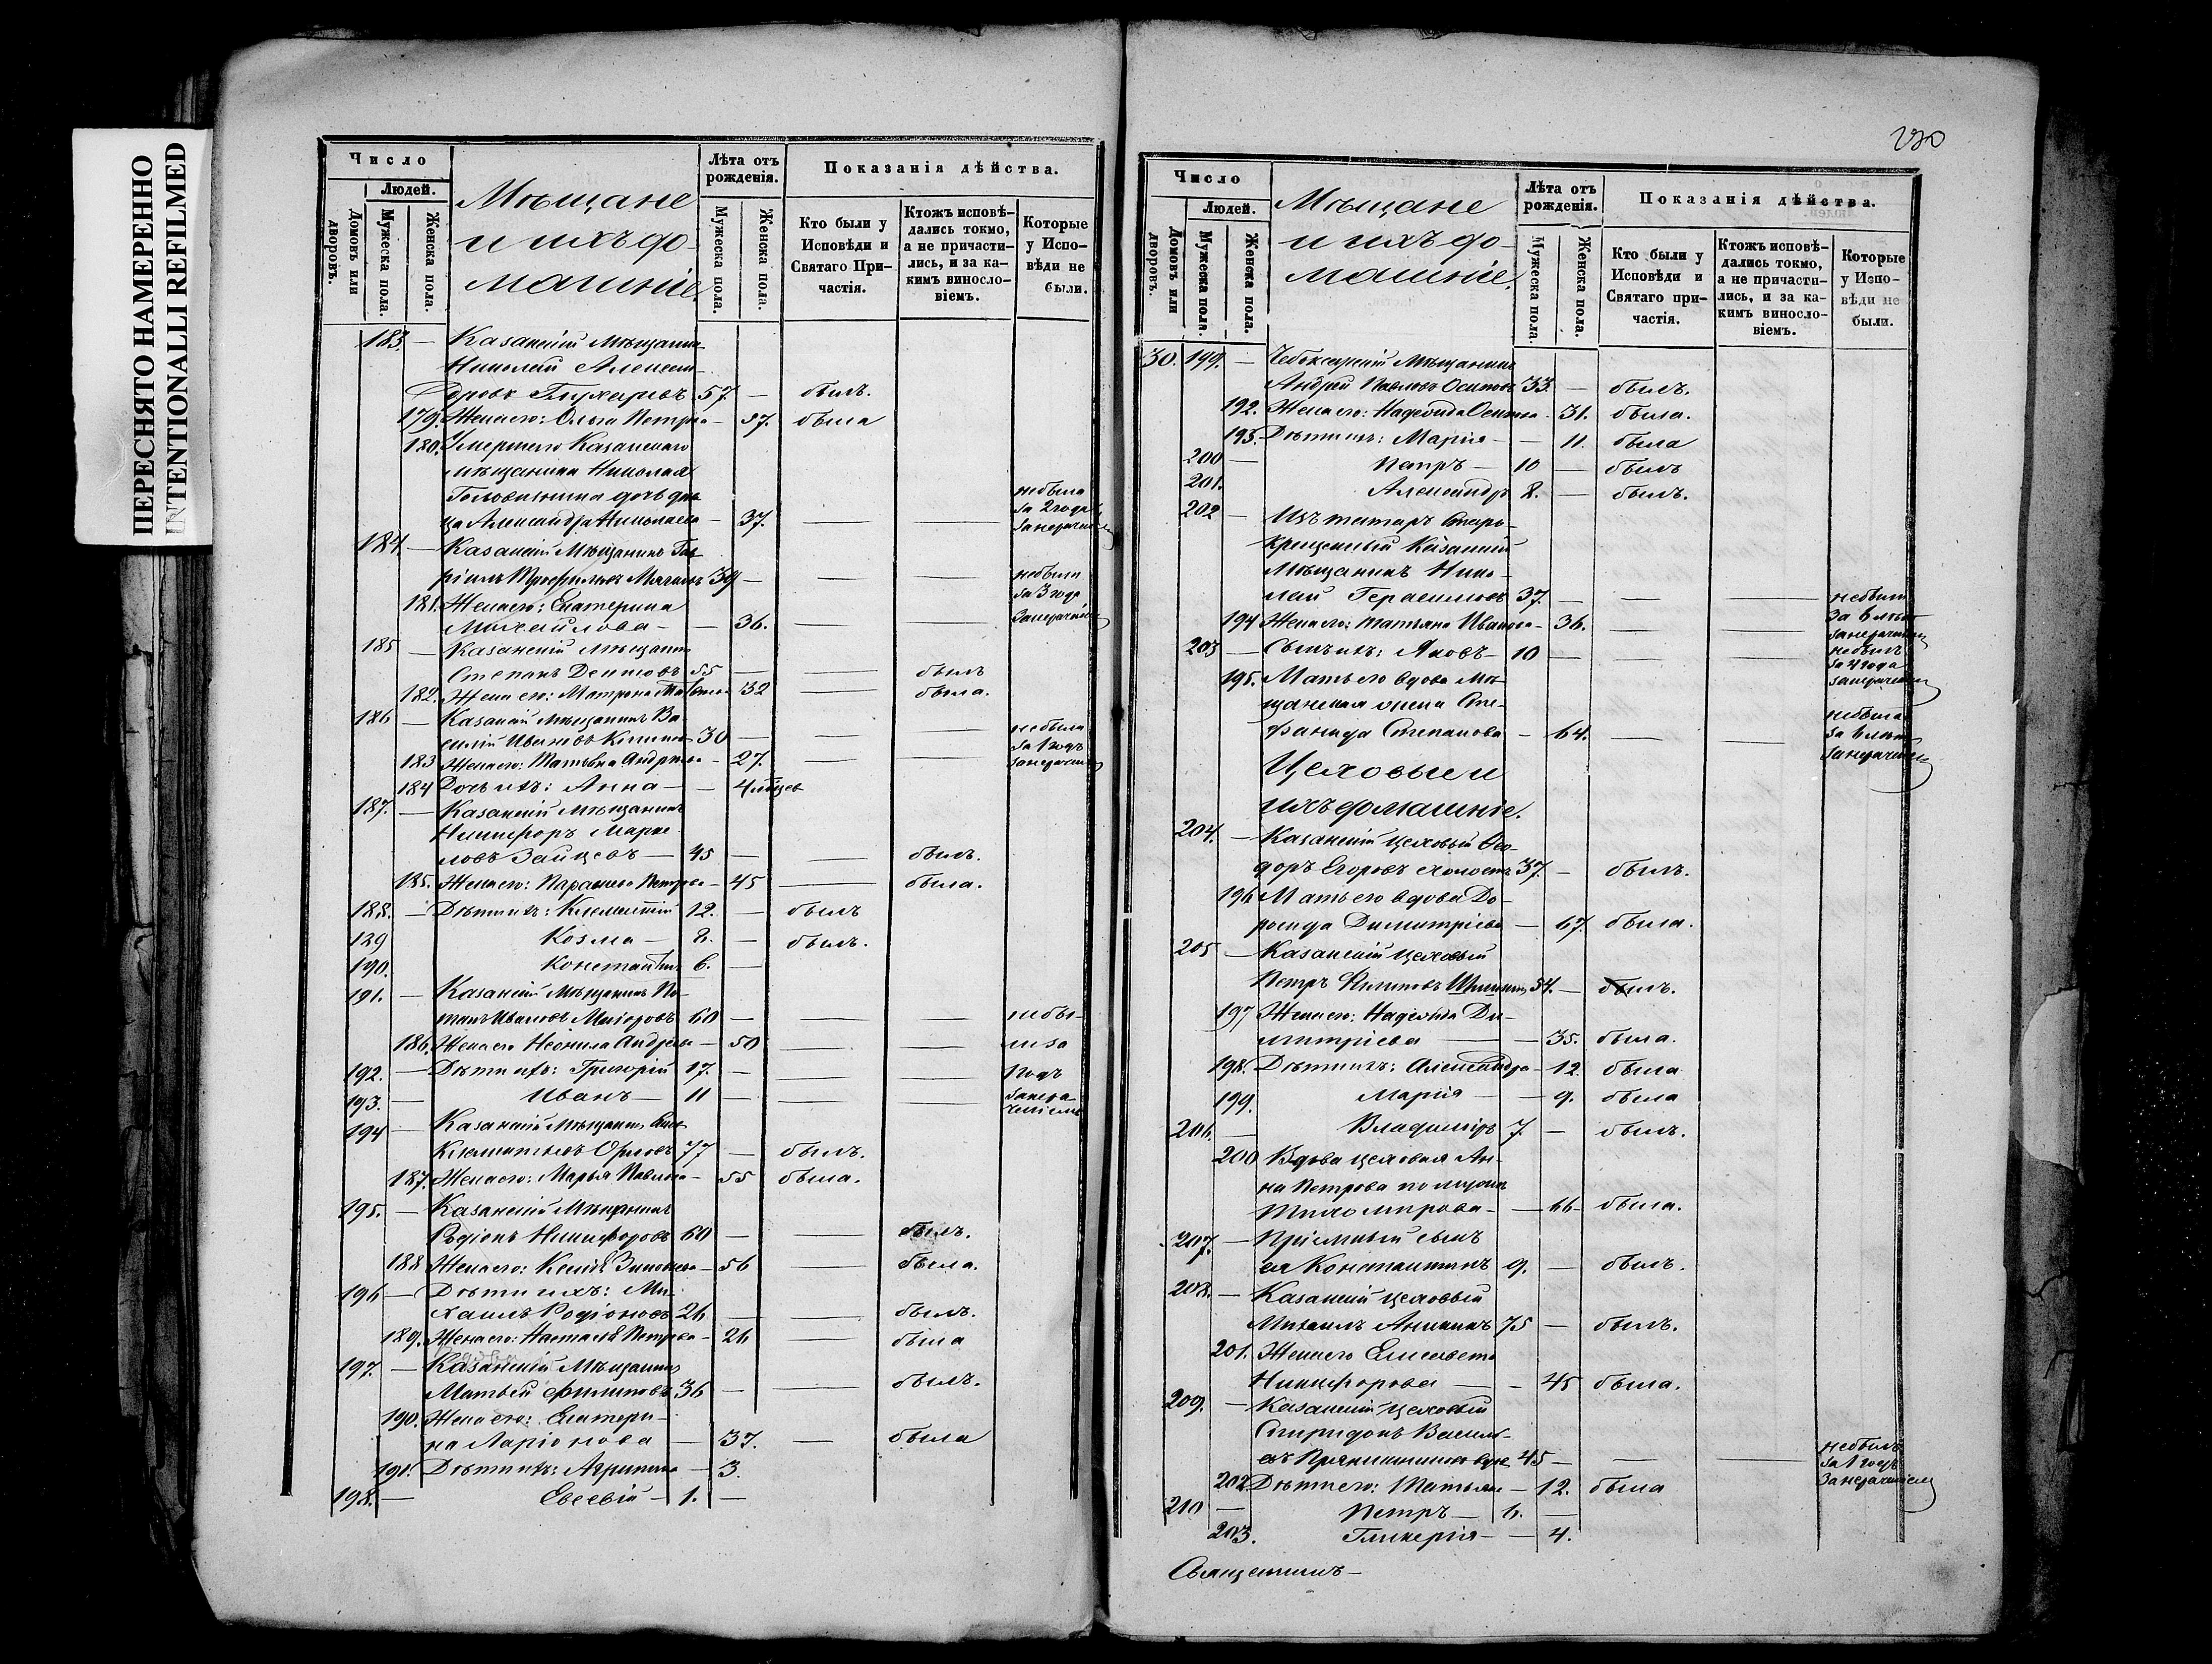 ПЕРЕСНЯТО НАМЕРЕННО
INTENTIONALLI REFILMED
Число
Людей.
Домовъ или дворовъ.
Мужеска пола.
Женска пола.
Мѣщане
и ихъ до-
машніе.
Лѣта отъ рожденія.
Мужеска пола.
Женска пола.
Показанія дѣйства.
Кто были у Исповѣди и Святаго Причастія.
Ктожъ исповѣ-
дались токмо,
а не причасти-
лись, и за ка-
кимъ винослo-
віемъ.
Которые
у Испо-
вѣди не
были.
183. — Казанскій Мѣщанинъ
Николай Алексан-
дровъ 57. — былъ.
179. Жена его: Ольга Петрова — 57. была
180. Умершего Казанскаго
мѣщанина Николая
дочь дѣви-
ца Александра Николаева — 37. — — не была за 2 года за нераченіемъ
184. — Казанскій Мѣщанинъ Гав-
ріилъ 39 — — — не были за 3 года
181. Жена его: Екатерина
Михайлова — — 36. — — за нераченіемъ
185 — Казанскій мѣщанинъ
Степанъ 55 — — былъ
182. Жена его: Матрона — 32 — была.
186 — Казанскій мѣщанинъ Ва-
силій Ивановъ 30 — — — не были за 1 годъ
183 Жена его: Татьяна Андреева — 27. — — за нераченіемъ
184 Дочь ихъ: Анна — — 4 мѣсцев
187. — Казанскій Мѣщанинъ
Никифоръ Марке-
ловъ Зайцевъ — 45 — — былъ.
185. Жена его: Параскева Петрова — 45 — была.
188. — Дѣти ихъ: Климентій 12. — былъ
189 Козма — 8. — былъ.
190. Константинъ 6. —
191. — Казанскій Мѣщанинъ По-
тапъ Ивановъ 60 — — — не бы-
186. Жена его Неонила Андреева — 50 — — ли за
192. — Дѣти ихъ: Григорій 17. — — — 1 годъ
193. — Иванъ — 11 — — — за нера-
ченіемъ
194 — Казанскій Мѣщанинъ
Климентьевъ Орловъ 77 — былъ.
187. Жена его: Марья Павлова — 55 была.
195. — Казанскій Мѣщанинъ
Родіонъ Никифоровъ 60 — — былъ.
188 Жена его: Ксенія Зиновьева — 56 — была.
196 — Дѣти ихъ: Ми-
хаилъ Родіоновъ 26 — — былъ.
189. Жена его: Настасія Петрова — 26 была
197. — Казанскій Мѣщанинъ
Матвѣй Филиповъ 36 — — былъ.
190. Жена его: Екатери-
на Ларіонова — 37. — была
191. Дѣти ихъ: Агрипина — 3.
198. — Евсевій — 1. —
230
Число
Людей.
Домовъ или дворовъ.
Мужеска пола.
Женска пола.
Мѣщане
и ихъ до-
машніе.
Лѣта отъ рожденія.
Мужеска пола.
Женска пола.
Показанія дѣйства.
Кто были у Исповѣди и Святаго причастія.
Ктожъ исповѣ-
дались токмо,
а не причасти-
лись, и за ка-
кимъ винослo-
віемъ.
Которые
у Испо-
вѣди не
были.
30. 199. — Чебоксарскій Мѣщанинъ
Андрей Павловъ Осиповъ 33. — былъ.
192. Жена его: Надежда Осипова — 31. была.
193. Дѣти ихъ: Марія — — 11. была
200 — Петръ — 10 — былъ
201. Александръ 8. — былъ.
202 — Изъ татаръ Старо-
крещеный Казанскій
Мѣщанинъ Нико-
лай Герасимовъ 37. — — — не были
194 Жена его: Татьяна Иванова — 36. — — за 6 лѣтъ за нераченіемъ
203 — Сынъ ихъ: Яковъ — 10 — — — не былъ за 4 года за нераченіемъ
195. Мать его вдова Мѣ-
щанская жена Сте-
фанида Степанова — 64. — — не была за 6 лѣтъ за нераченіемъ
Цеховые и
ихъ домашніе.
204. — Казанскій цеховый Ѳео-
доръ Егоровъ холостъ 37. — былъ.
196 Мать его вдова До-
роѳида Димитріева — 67 была.
205 — Казанскій цеховый
Петръ Филиповъ 54. — былъ.
197 Жена его: Надежда Ди-
митріева — — 35. была.
198. Дѣти ихъ: Александра — 12. была
199. Марія — — 9. была
206. — Владиміръ 7. — былъ.
200 Вдова цеховая Ан-
на Петрова по мужѣ
Тихомирова — — 66 — была.
207. — Пріемный сынъ
ея Константинъ 9. — былъ.
208. — Казанскій цеховый
Михаилъ Аникинъ 75 — былъ.
201. Жена его Елисавета
Никифорова — — 45 была.
209. — Казанскій Цеховый
Спиридонъ Василь-
евъ 45 — — — не былъ за 1 годъ за нераченіемъ
202 Дѣти его: Татьяна — 12. была
210 — Петръ — 6. —
203. Гликерія — — 4.
Священникъ —